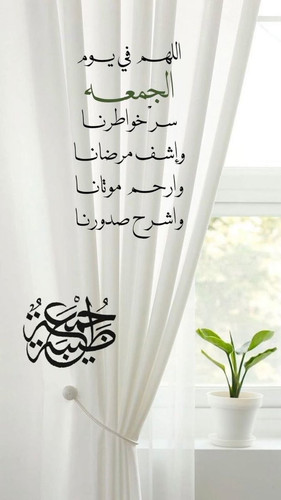 اللهم في يوم
الجمعه
سر خواطرنا
وإشف مرضانا
وارحم موتانا
واشرح صدورنا
جمعة طيبة